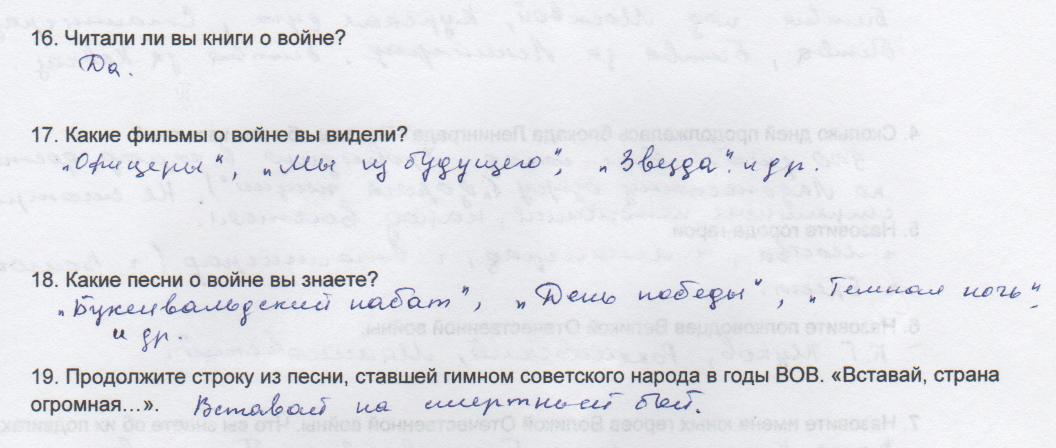 16. Читали ли вы книги о войне?
Да.
17. Какие фильмы о войне вы видели?
„Офицеры", „Мы из будущего", „Звезда". и др.
18. Какие песни о войне вы знаете?
„Бухенвальдский набат", „День победы", „Темная ночь"
и др.
19. Продолжите строку из песни, ставшей гимном советского народа в годы ВОВ. «Вставай, страна
огромная…». Вставай на смертный бой.